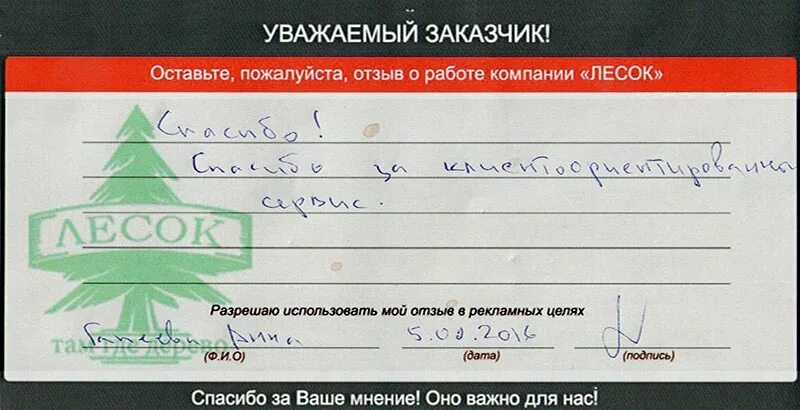 УВАЖАЕМЫЙ ЗАКАЗЧИК!
Оставьте, пожалуйста, отзыв о работе компании «ЛЕСОК»
Спасибо!
Спасибо за клиентоориентированный
сервис.
ЛЕСОК
там где дерево
Разрешаю использовать мой отзыв в рекламных целях
Анна 5.02.2016
(Ф.И.О) (дата) (подпись)
Спасибо за Ваше мнение! Оно важно для нас!